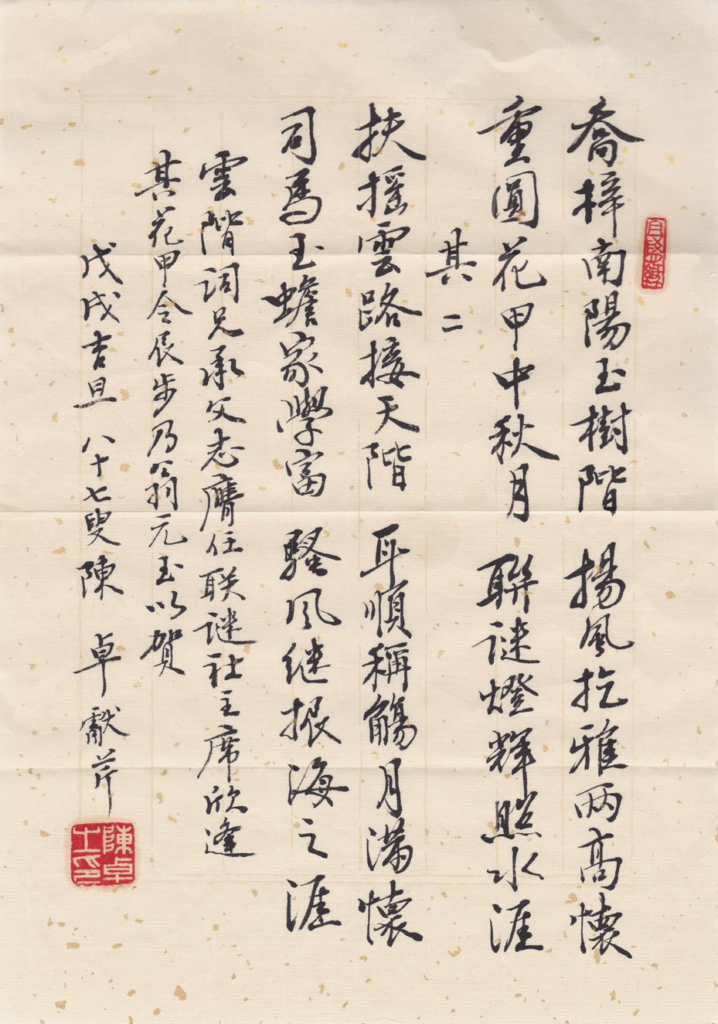 喬梓南陽玉樹階 揚風扢雅兩高懷
重圓花甲中秋月 聯謎燈輝照水涯
其二
扶摇雲路接天階 耳順稱觴月滿懷
司馬玉蟾家學富 騷風继振海之涯
雲階词兄承父志膺任联谜社主席欣逢
其花甲令辰步乃翁元玉以賀
戊戌吉旦 八十七叟陳 卓獻芹
陳卓
士印